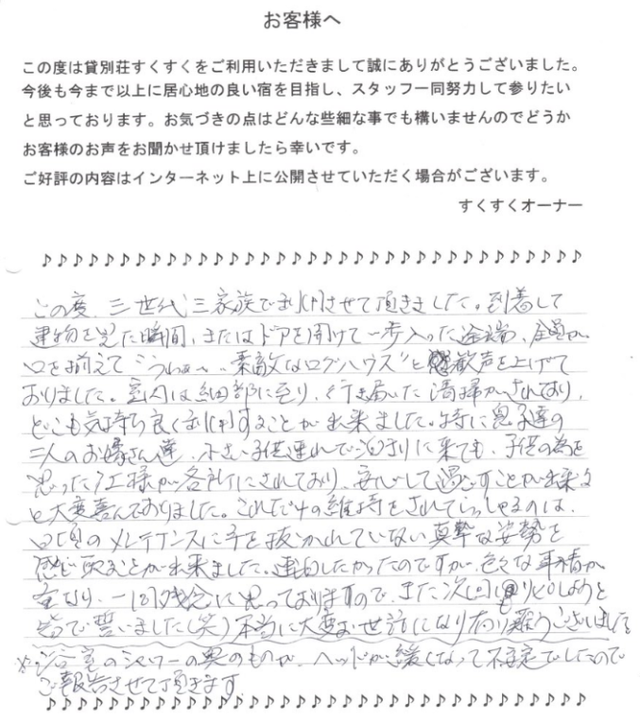 お客様へ
この度は貸別荘すくすくをご利用いただきまして誠にありがとうございました。
今後も今まで以上に居心地の良い宿を目指し、スタッフ一同努力して参りたい
と思っております。お気づきの点はどんな些細な事でも構いませんのでどうか
お客様のお声をお聞かせ頂けましたら幸いです。
ご好評の内容はインターネット上に公開させていただく場合がございます。
すくすくオーナー
♪♪♪♪♪♪♪♪♪♪♪♪♪♪♪♪♪♪♪♪♪♪♪♪♪♪♪♪♪♪♪♪♪♪♪
この度、三世代三家族で利用させて頂きました。到着して
建物を見た瞬間、またはドアを開けて一歩入った途端、全員が
口を揃えて"うわぁ〜、素敵なログハウス"と歓声を上げて
おりました。室内は細部に至り、行き届いた清掃がされており、
どこも気持ち良く利用することが出来ました。特に息子達の
二人のお嫁さん達、小さい子供連れで泊まりに来ても、子供の為を
思った工様が各所にされており、安心して過ごすことが出来る
と大変喜んでおりました。これだけの維持をされていらっしゃるのは、
日頃のメンテナンスに手を抜かれていない真摯な姿勢を
感じ取ることが出来ました。連泊したかったのですが、色々な事情が
重なり、一泊残念に思っておりますので、また次回リピしようと
皆で誓いました(笑) 本当に大変お世話になり有り難うございました
※浴室のシャワーの奥のものが、ヘッドが緩くなって不安定でしたので
ご報告させて頂きます。
♪♪♪♪♪♪♪♪♪♪♪♪♪♪♪♪♪♪♪♪♪♪♪♪♪♪♪♪♪♪♪♪♪♪♪